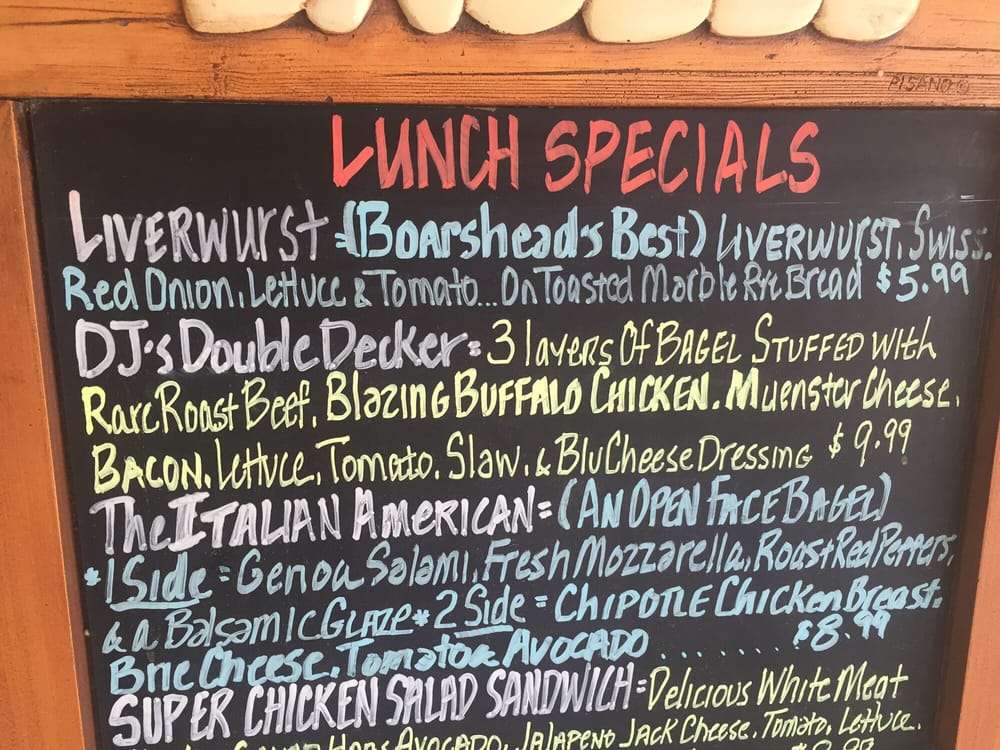 PISANO©
LUNCH SPECIALS
LIVERWURST = (BOARSHEAD'S BEST) LIVERWURST, SWISS,
Red Onion, Lettuce & Tomato... On Toasted Marble Rye Bread $5.99
DJ's Double Decker = 3 layers Of BAGEL STUFFED With
Rare Roast Beef, Blazing BUFFALO CHICKEN, Muenster Cheese,
BACON, Lettuce, Tomato, Slaw, & Blu Cheese Dressing $9.99
The ITALIAN AMERICAN = (AN OPEN FACE BAGEL)
*1 Side = Genoa Salami, Fresh Mozzarella, Roast Red Peppers,
& a Balsamic Glaze *2 Side = CHIPOTLE Chicken Breast,
Brie Cheese, Tomato & AVOCADO ........ $8.99
SUPER CHICKEN SALAD SANDWICH = Delicious White Meat
AVOCADO, JALAPENO JACK Cheese, Tomato, Lettuce,